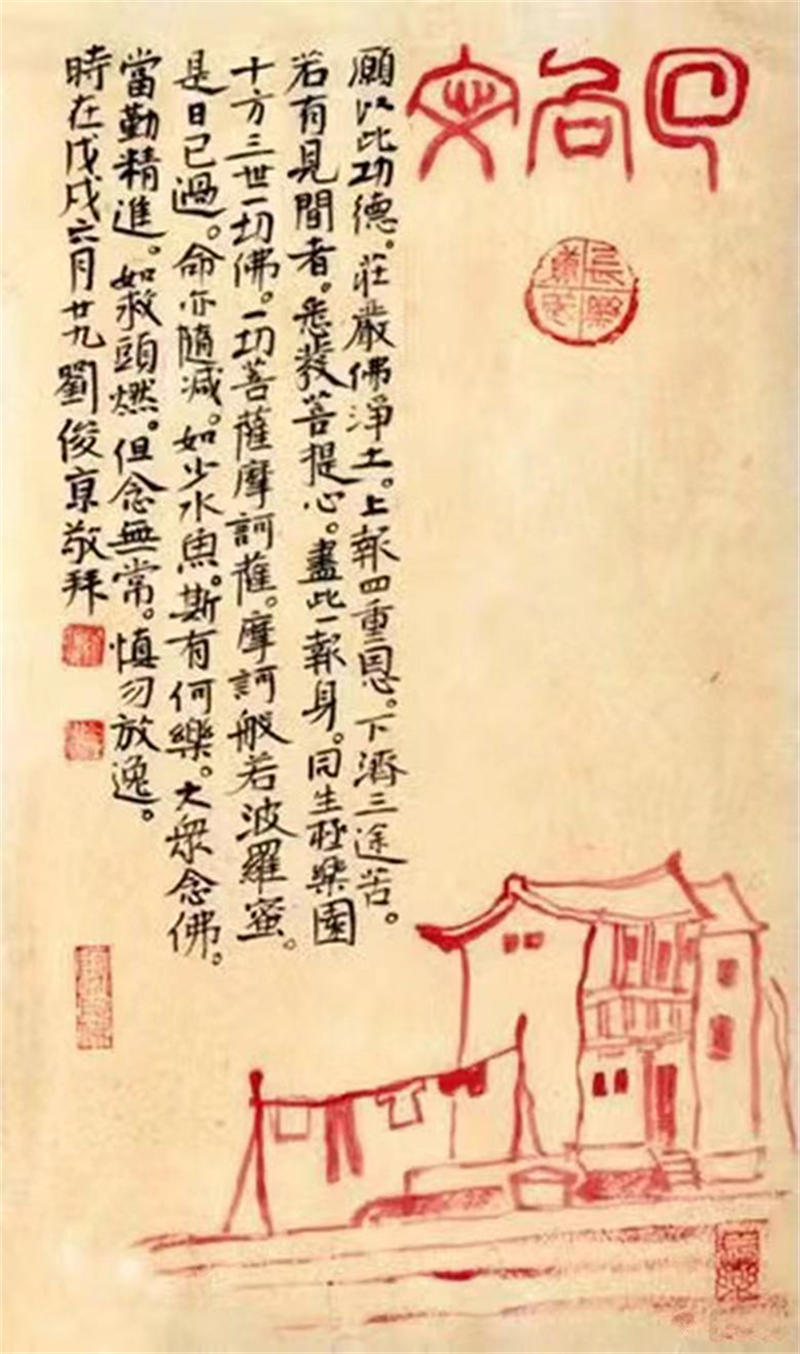 願以此功德。莊嚴佛淨土。上報四重恩。下濟三途苦。
若有見聞者。悉發菩提心。盡此一報身。同生極樂國
十方三世一切佛。一切菩薩摩訶薩。摩訶般若波羅蜜。
是日已過。命亦隨減。如少水魚。斯有何樂。大眾念佛。
當勤精進。如救頭燃。但念無常。慎勿放逸。
時在戊戌六月廿九劉俊京敬拜